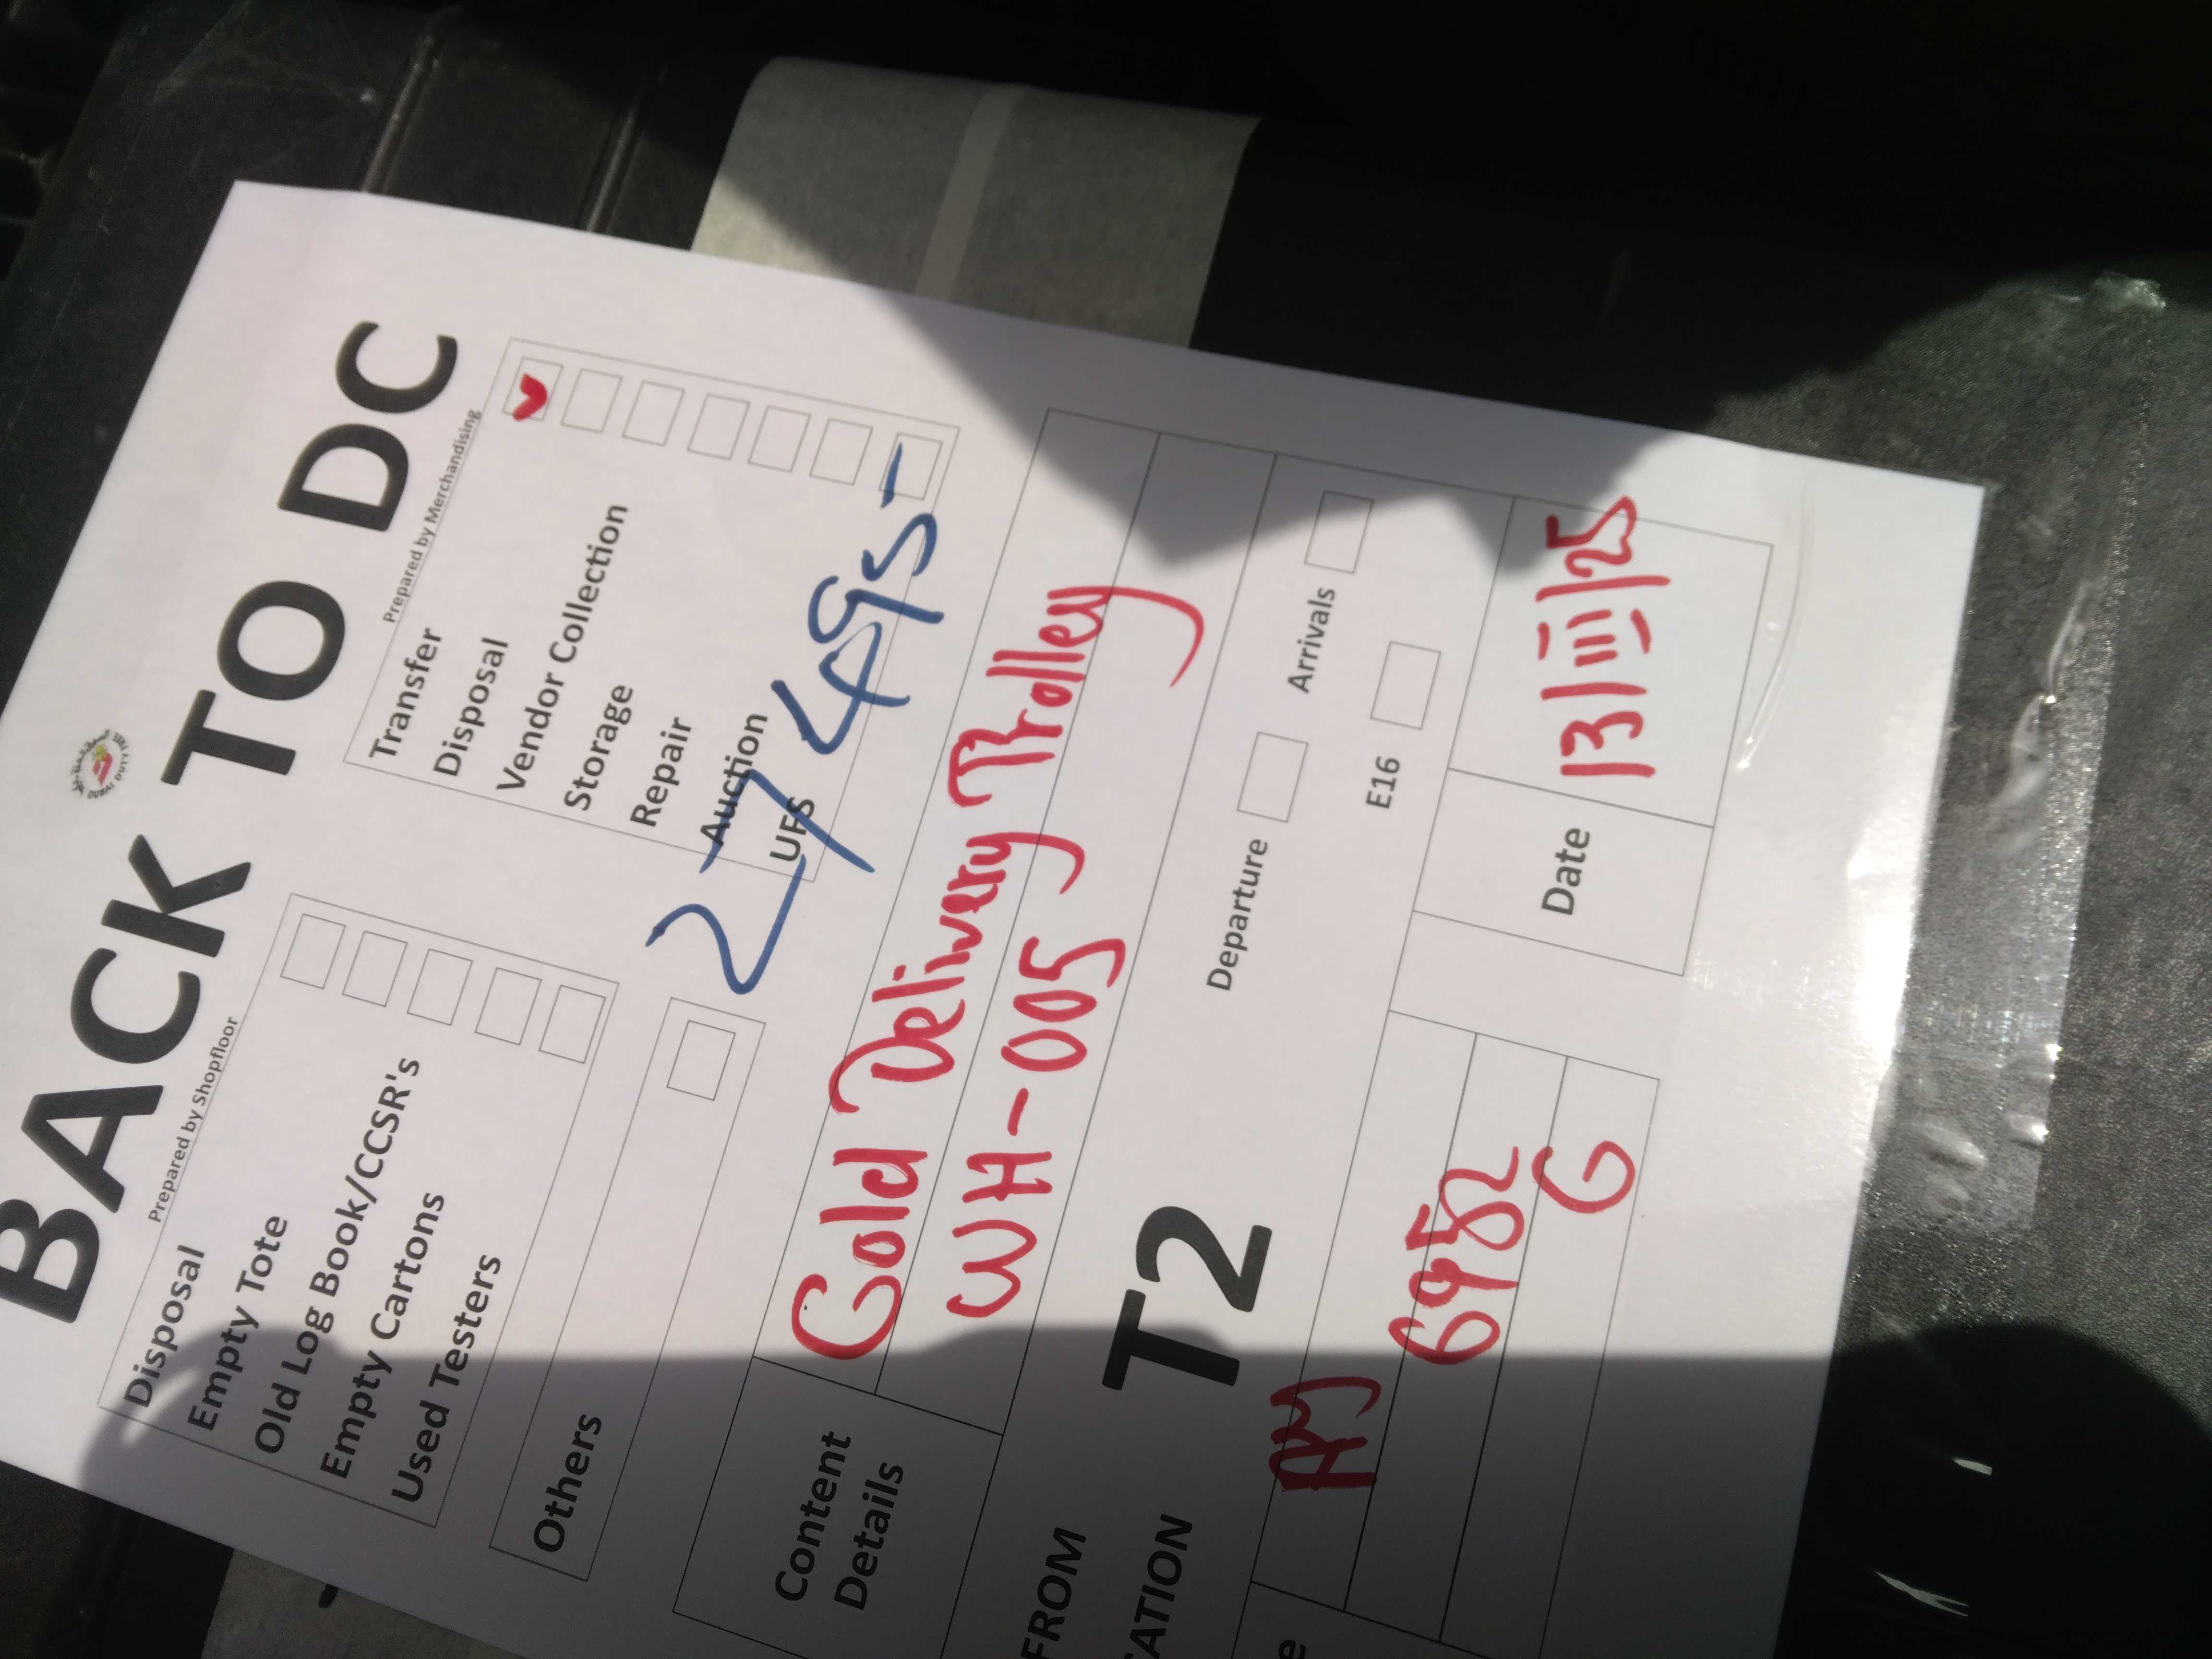 BACK TO DC
Prepared by Shopfloor
Disposal
Empty Tote
Old Log Book/CCSR's
Empty Cartons
Used Testers
Others
Prepared by Merchandising
Transfer
Disposal
Vendor Collection
Storage
Repair
Auction
UFS
27495-
Content
Details
Gold Delivery Trolley
WH-005
FROM
T2
Departure
Arrivals
E16
6982
G
Date
13/III/25